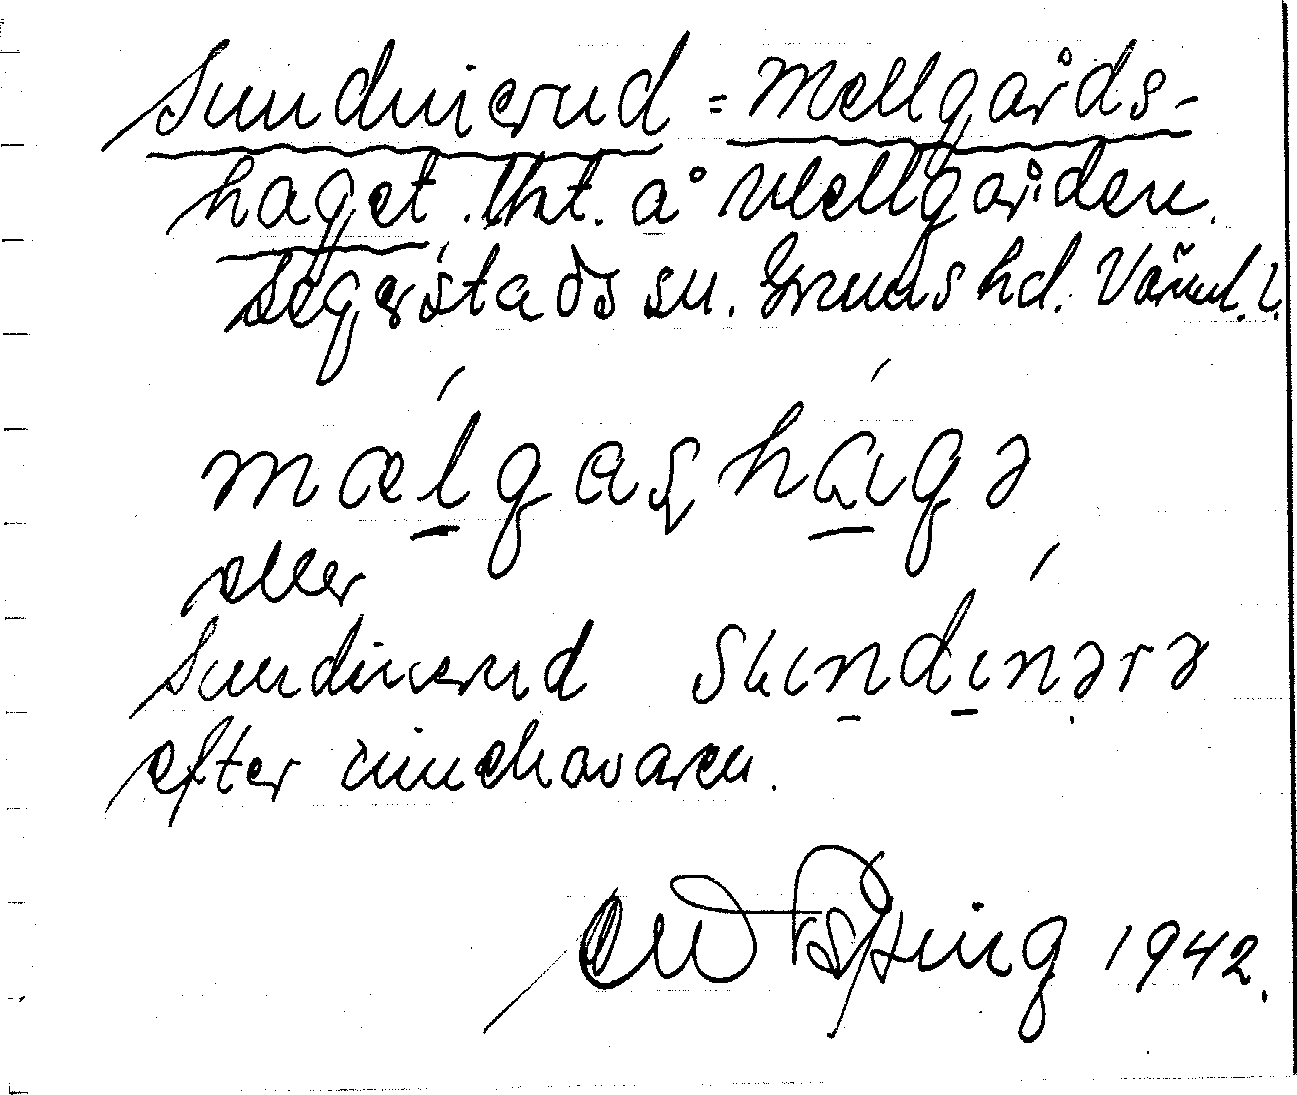 Sundinerud = Mellgårds-
haget. lht. å Mellgården.
Segerstads sn. Grums hd. Värml. l.
mælgaʂhágə
eller
Sundinerud sundínərə
efter innehavaren.
1942.